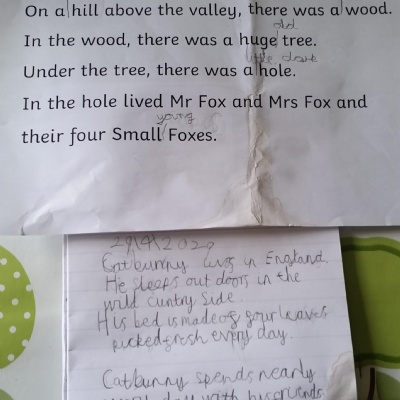 On a hill above the valley, there was a wood.
old
In the wood, there was a huge tree.
little dark
Under the tree, there was a hole.
In the hole lived Mr Fox and Mrs Fox and
young
their four Small Foxes.
Catbunny livs in England.
He sleeps out doors in the
wild cuntry side.
His bed is made of leaves
picked fresh every day.
Catbunny spends nearly
day with his